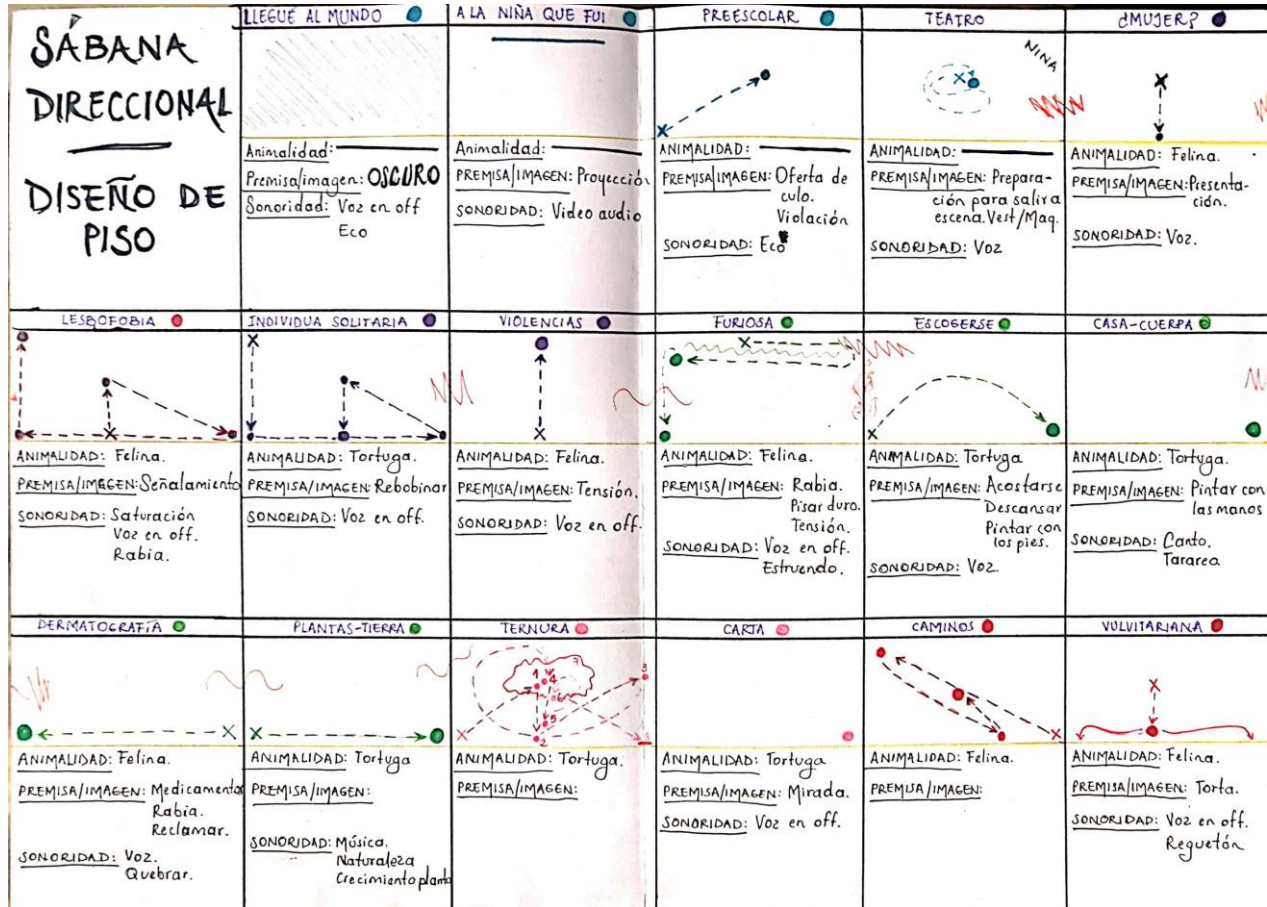 SÁBANA
DIRECCIONAL
DISEÑO DE
PISO
LLEGUÉ AL MUNDO
Animalidad:
Premisa/imagen: OSCURO
Sonoridad: Voz en off
Eco
A LA NIÑA QUE FUI
Animalidad:
PREMISA/IMAGEN: Proyección
SONORIDAD: Video audio
PREESCOLAR
X
ANIMALIDAD:
PREMISA/IMAGEN: Oferta de
culo.
Violación
SONORIDAD: Eco
TEATRO
NINA
X
ANIMALIDAD:
PREMISA/IMAGEN: Prepara-
ción para salir a
escena. Vest/Maq.
SONORIDAD: Voz
¿MUJER?
X
ANIMALIDAD: Felina.
PREMISA/IMAGEN: Presenta-
ción.
SONORIDAD: Voz.
LESBOFOBIA
X
ANIMALIDAD: Felina.
PREMISA/IMAGEN: Señalamiento
SONORIDAD: Saturación
Voz en off.
Rabia.
INDIVIDUA SOLITARIA
X
ANIMALIDAD: Tortuga.
PREMISA/IMAGEN: Rebobinar
SONORIDAD: Voz en off.
VIOLENCIAS
X
ANIMALIDAD: Felina.
PREMISA/IMAGEN: Tensión.
SONORIDAD: Voz en off.
FURIOSA
X
ANIMALIDAD: Felina.
PREMISA/IMAGEN: Rabia.
Pisar duro.
Tensión.
SONORIDAD: Voz en off.
Estruendo.
ESCOGERSE
X
ANIMALIDAD: Tortuga
PREMISA/IMAGEN: Acostarse
Descansar
Pintar con
los pies.
SONORIDAD: Voz.
CASA-CUERPA
ANIMALIDAD: Tortuga.
PREMISA/IMAGEN: Pintar con
las manos
SONORIDAD: Canto.
Tarareo
DERMATOGRAFÍA
X
ANIMALIDAD: Felina.
PREMISA/IMAGEN: Medicamentos
Rabia.
Reclamar.
SONORIDAD: Voz.
Quebrar.
PLANTAS-TIERRA
X
ANIMALIDAD: Tortuga
PREMISA/IMAGEN:
SONORIDAD: Música.
Naturaleza
Crecimiento planta
TERNURA
1 4 7 3
6
5
X 2
ANIMALIDAD: Tortuga.
PREMISA/IMAGEN:
CARTA
ANIMALIDAD: Tortuga
PREMISA/IMAGEN: Mirada.
SONORIDAD: Voz en off.
CAMINOS
X
ANIMALIDAD: Felina.
PREMISA/IMAGEN:
VULVITARIANA
X
ANIMALIDAD: Felina.
PREMISA/IMAGEN: Torta.
SONORIDAD: Voz en off.
Reguetón